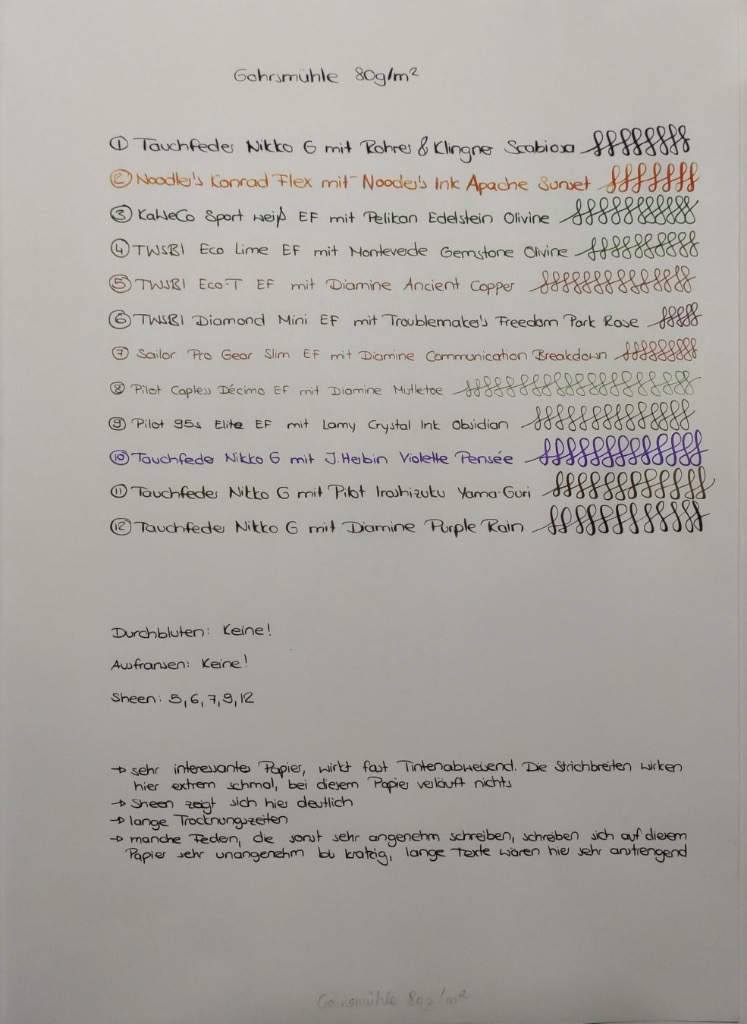 Gohrsmühle 80g/m²
① Tauchfeder Nikko G mit Rohrer & Klingner Scabiosa
② Noodler's Konrad Flex mit Nooder's Ink Apache Sunset
③ KaWeCo Sport weiß EF mit Pelikan Edelstein Olivine
④ TWSBI Eco Lime EF mit Monteverde Gemstone Olivine
⑤ TWSBI Eco-T EF mit Diamine Ancient Copper
⑥ TWSBI Diamond Mini EF mit Troublemaker's Freedom Park Rose
⑦ Sailor Pro Gear Slim EF mit Diamine Communication Breakdown
⑧ Pilot Capless Décimo EF mit Diamine Mistletoe
⑨ Pilot 95s Elite EF mit Lamy Crystal Ink Obsidian
⑩ Tauchfeder Nikko G mit J. Herbin Violette Pensée
⑪ Tauchfeder Nikko G mit Pilot Iroshizuku Yama-Guri
⑫ Tauchfeder Nikko G mit Diamine Purple Rain
Durchbluten: Keine!
Ausfransen: Keine!
Sheen: 5, 6, 7, 9, 12
→ sehr interessantes Papier, wirkt fast Tintenabweisend. Die Strichbreiten wirken
hier extrem schmal, bei diesem Papier verläuft nichts
→ Sheen zeigt sich hier deutlich
→ lange Trocknungszeiten
→ manche Federn, die sonst sehr angenehm schreiben, schreiben sich auf diesem
Papier sehr unangenehm bis kratzig, lange Texte wären hier sehr anstrengend
Gohrsmühle 80g/m²